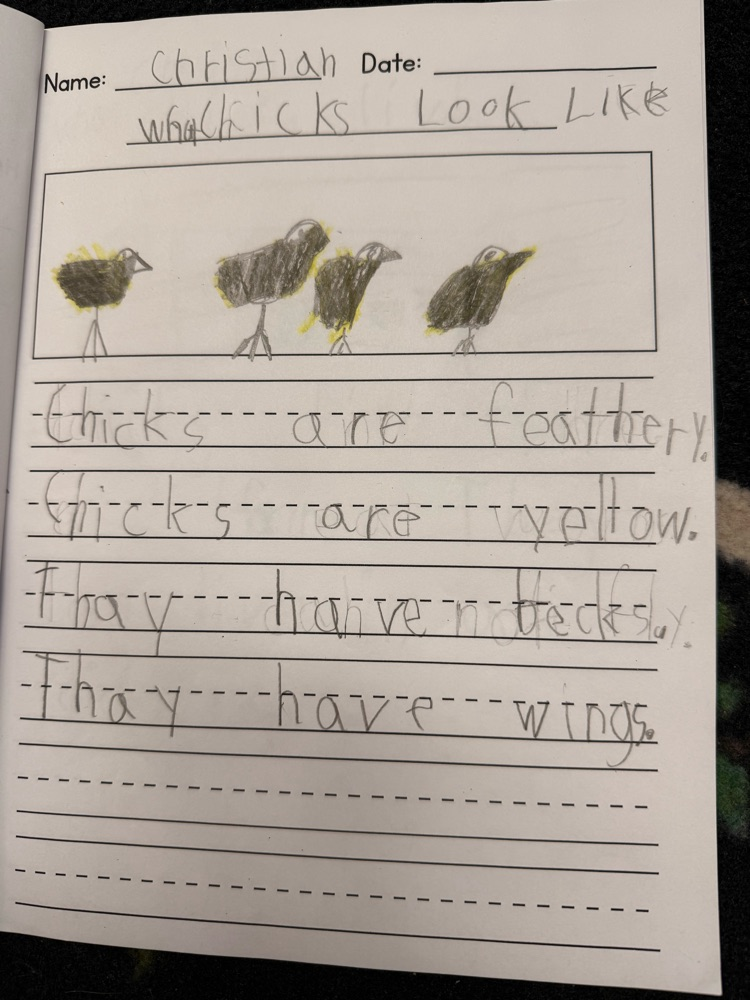 Name: Christian Date:
What Chicks Look LIKE
Chicks are feathery.
Chicks are yellow.
Thay have becks.
Thay have wings.